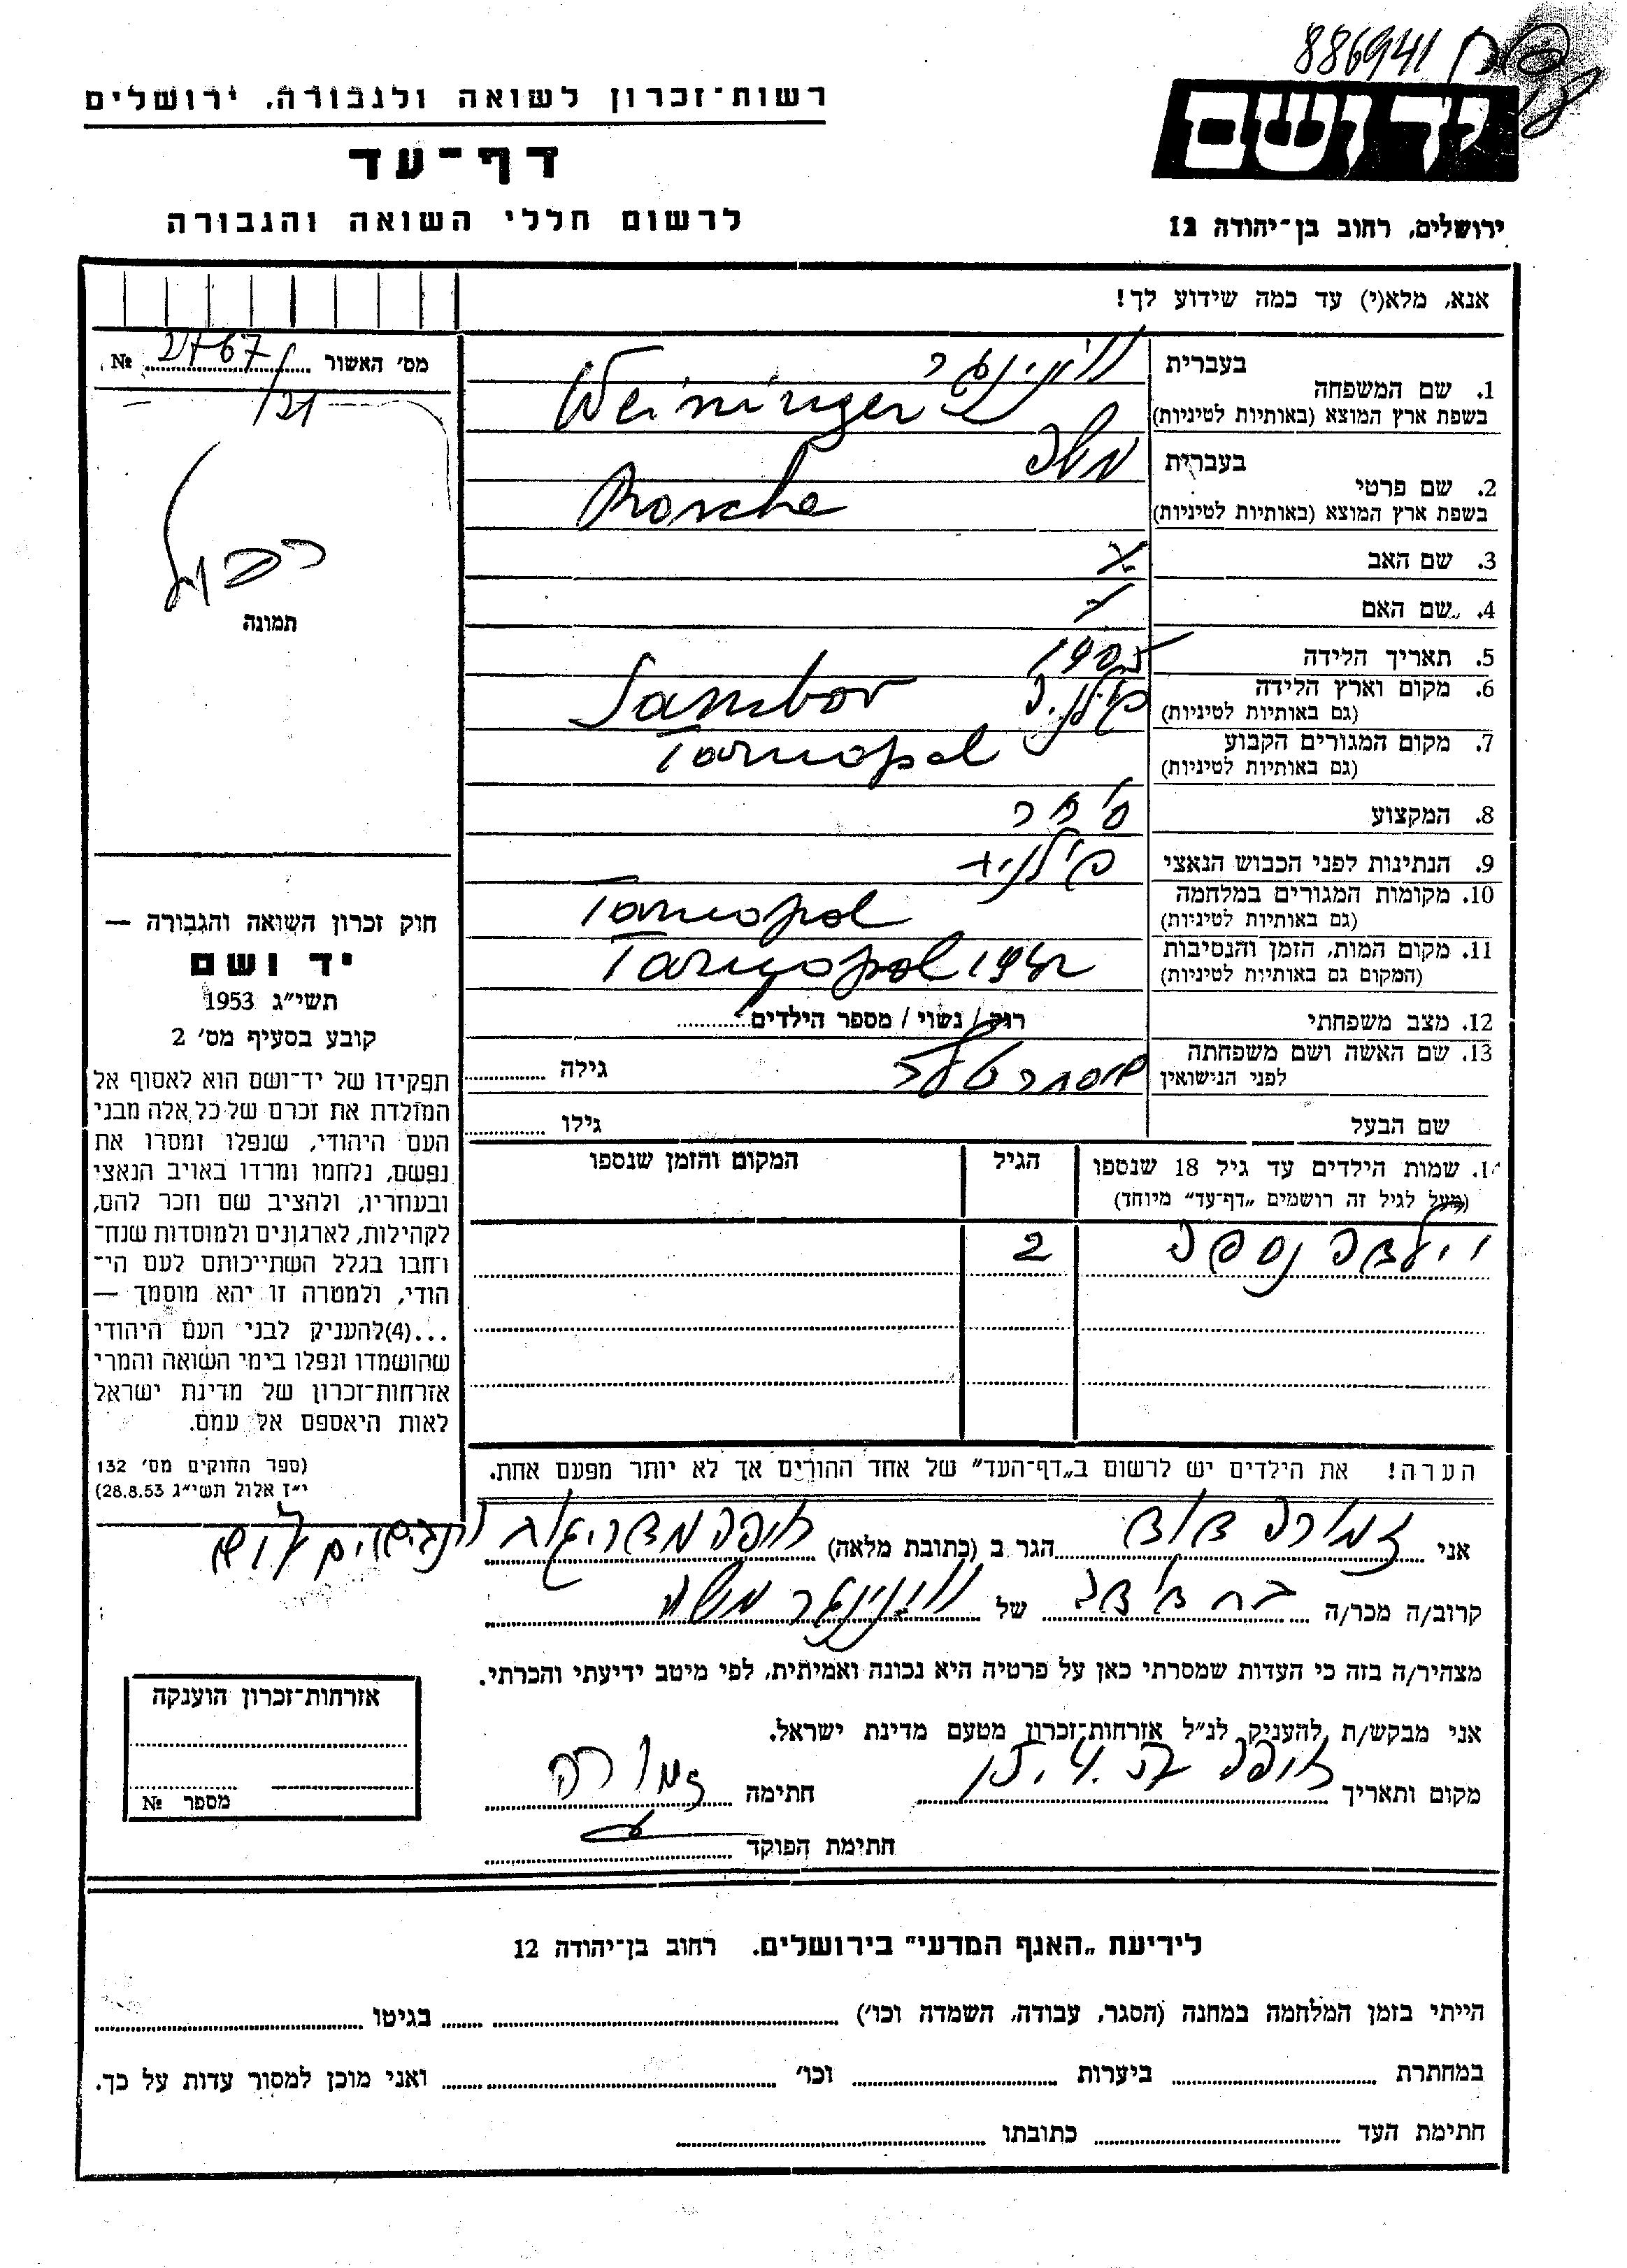 886941
רשות־זכרון לשואה ולגבורה, ירושלים
דף־עד
לרשום חללי השואה והגבורה
יד ושם
ירושלים, רחוב בן־יהודה 12
אנא, מלא(י) עד כמה שידוע לך!
מס׳ האשור № 2767/
/21
תמונה
חוק זכרון השואה והגבורה —
יד ושם
תשי״ג 1953
קובע בסעיף מס׳ 2
תפקידו של יד־ושם הוא לאסוף אל
המולדת את זכרם של כל אלה מבני
העם היהודי, שנפלו ומסרו את
נפשם, נלחמו ומרדו באויב הנאצי
ובעוזריו, ולהציב שם וזכר להם,
לקהילות, לארגונים ולמוסדות שנח־
רחבו בגלל השתייכותם לעם הי־
הודי, ולמטרה זו יהא מוסמך —
...(4)להעניק לבני העם היהודי
שהושמדו ונפלו בימי השואה והמרי
אזרחות־זכרון של מדינת ישראל
לאות היאספם אל עמם.
(ספר החוקים מס׳ 132
י״ז אלול תשי״ג 28.8.53)
1. שם המשפחה
בעברית ויינינגר
בשפת ארץ המוצא (באותיות לטיניות) Weininger
2. שם פרטי
בעברית משה
בשפת ארץ המוצא (באותיות לטיניות) Mosche
3. שם האב
4. שם האם
5. תאריך הלידה 1905
6. מקום וארץ הלידה
(גם באותיות לטיניות) פולניה Sambor
7. מקום המגורים הקבוע
(גם באותיות לטיניות) Tarnopol
8. המקצוע סוחר
9. הנתינות לפני הכבוש הנאצי פולנית
10. מקומות המגורים במלחמה
(גם באותיות לטיניות) Tarnopol
11. מקום המות, הזמן והנסיבות
(המקום גם באותיות לטיניות) Tarnopol 1942
12. מצב משפחתי רוק / נשוי / מספר הילדים
13. שם האשה ושם משפחתה
לפני הנישואין גילה
שם הבעל גילו
14. שמות הילדים עד גיל 18 שנספו הגיל המקום והזמן שנספו
(מעל לגיל זה רושמים „דף־עד״ מיוחד)
2
הערה! את הילדים יש לרשום ב„דף־העד״ של אחד ההורים אך לא יותר מפעם אחת.
אני הגר ב (כתובת מלאה) חיפה
קרוב/ה מכר/ה של ויינינגר משה
מצהיר/ה בזה כי העדות שמסרתי כאן על פרטיה היא נכונה ואמיתית, לפי מיטב ידיעתי והכרתי.
אני מבקש/ת להעניק לנ״ל אזרחות־זכרון מטעם מדינת ישראל.
מקום ותאריך חיפה חתימה
חתימת הפוקד
אזרחות־זכרון הוענקה
מספר №
לידיעת „האגף המדעי״ בירושלים. רחוב בן־יהודה 12
הייתי בזמן המלחמה במחנה (הסגר, עבודה, השמדה וכו׳) בגיטו
במחתרת ביערות וכו׳ ואני מוכן למסור עדות על כך.
חתימת העד כתובתו